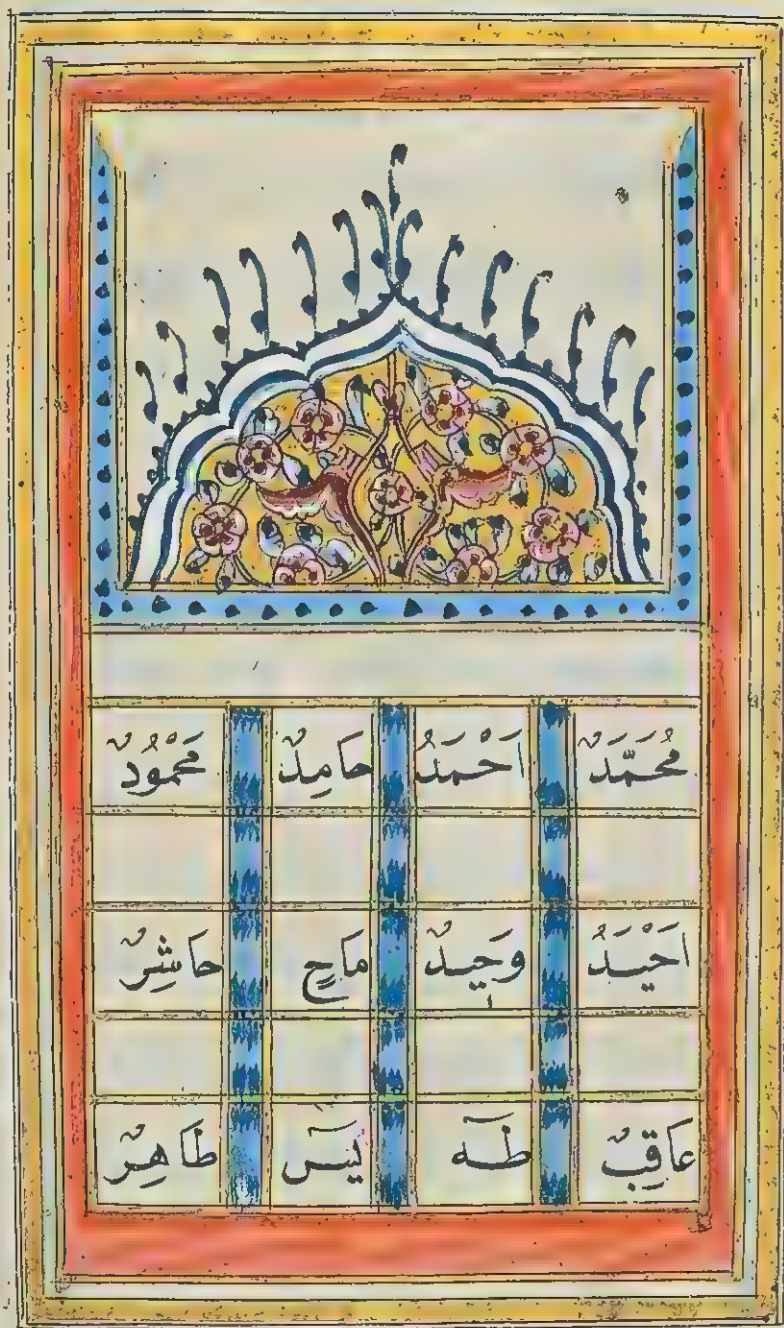 مُحَمَّدٌ اَحْمَدُ حَامِدٌ مَحْمُودٌ
اَحْيَدُ وَحِيدٌ مَاحٍ حَاشِرٌ
عَاقِبٌ طٰهٰ يٰسٓ طَاهِرٌ